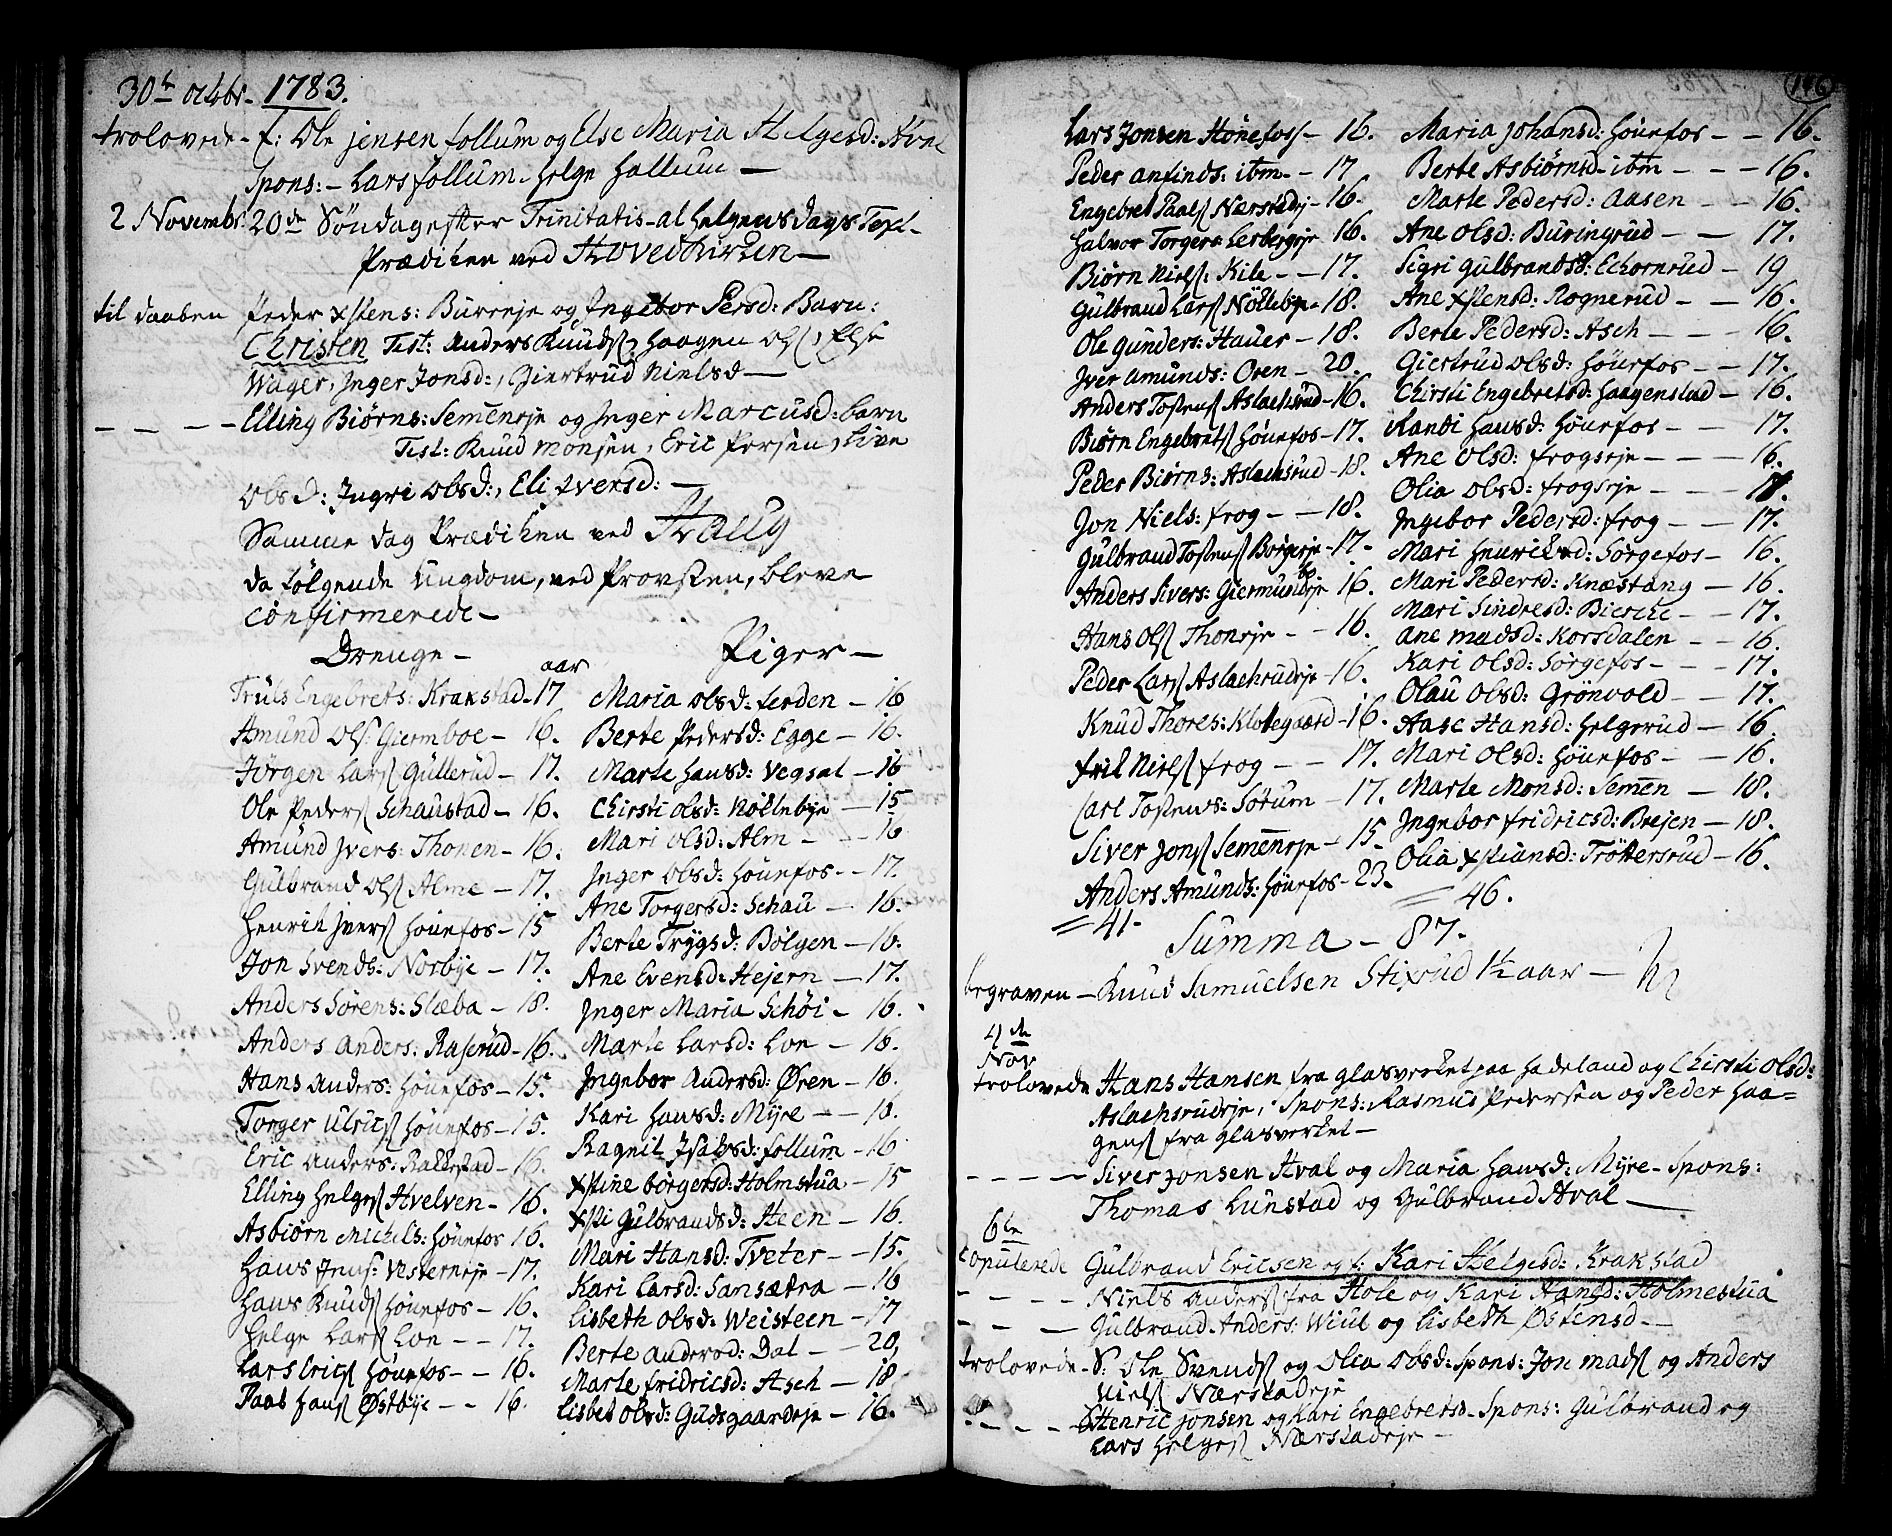 30te octobr. 1783.
trolovede - f: Ole jensen follum og Else Maria Helgesd:
Spons: - Lars follum. Helge Hallum -
2 Novembr. 20de Söndag efter Trinitatis - al helgens dags Text -
Prædiken ved Hovedkirken -
til daaben Peder xstens: Bureeje og Ingebor Persd: Barn:
Christen Test: Anders Knudsen, Haagen Ols:, Else
Wager, Inger Jonsd:, Giertrud Nielsd -
- - - - Elling Biörns: Semeneje og Inger Marcusd: barn
Test: Knud Monsen, Eric Persen, Live
Olsd: Ingri Olsd:, Eli Iversd: -
Samme dag Prædiken ved Haug
da følgende Ungdom, ved Provsten, bleve
confirmerede -
Drenge -
aar
Truls Engebrets: Krakstad - 17
Amund Ols: Giermboe - 16.
Jörgen Lars: Gullerud - 17.
Ole Peders: Schaustad - 16.
Amund Ivers: Thonen - 16.
Gulbrand Ols: Alme - 17.
Henrik Ivers: Hönefos - 15
Jon Svends: Norbye - 17.
Anders Sörens: Slæba - 18.
Anders Anders: Raserud - 16.
Hans Anders: Hönefos - 15.
Torger Ulrics: Hönefos - 15.
Eric Anders: Rakkestad - 16.
Elling Helges: Hvelven - 16.
Asbiörn Michels: Hönefos 16.
Hans Jens: Vesterneje - 17.
Hans Knuds: Hönefos - 16.
Helge Lars: Loe - - 17.
Lars Erics: Hönefos - - 16.
Paal Hans: Östbye - - 16.
Piger -
Maria Olsd: Ferden - 16
Berte Pedersd: Egge - 16.
Marte Hansd: Vegsal - 16
Chirsti Olsd: Nöklebye - 15
Mari Olsd: Alm - - - 16
Inger Olsd: Hönefos - - 17.
Ane Torgersd: Schau - 16.
Berte Trygsd: Bölgen - 16.
Ane Evensd: Hejern - 17.
Inger Maria Schöi - 16.
Marte Larsd: Loe - 16.
Ingebor Andersd: Ören - 16.
Kari Hansd: Myre - - 16.
Ragnil Isaksd: follum - 16
xstine börgersd: Holmstua - 15
xsti Gulbrandsd: Heen - 16.
Mari Hansd: Tveter - - 15.
Kari Larsd: Sansætra - 16
Lisbeth Olsd: Weisteen - 17
Berte Andersd: Dal - - 20,
Marte fridricsd: Asch - 18
Lisbet Olsd: Gudsgaardeje - 16.
146
Lars Jonsen Hönefos - 16.
Peder Anfinds: ibm - - 17
Engebret Paals: Nærstadej - 16.
Halvor Torgers: Lerbergeje 16.
Biörn Niels: Kile - - 17.
Gulbrand Lars: Nöklebye - 18.
Ole Gunders: Hauer - 18.
Iver Amunds: Oren - 20.
Anders Tostens: Aslachsrud - 16.
Biörn Engebrets: Hönefos - 17.
Peder Biörns: Aslachsrud - 18.
Jon Niels: frog - - 18.
Gulbrand Tostens: Borgeeje - 17.
Anders Sivers: Giermundboeje 16.
Hans Ols: Thoneje - - 16.
Peder Lars: Aslachrudeje - 16.
Knud Thores: Klokegaard - 16.
Niels: frog - - 17.
Carl Tostens: Sörum - 17.
Siver Jons: Semeneje - 15.
Anders Amunds: Hönefos - 23.
= 41.
Maria Johansd: Hönefos - - 16.
Berte Asbiörnsd - ibm - - - 16.
Marte Pedersd: Aasen - - 16.
Ane Olsd: Buringrud - - 17.
Sigri Gulbrandsd: Echornrud - 19
Ane xstensd: Rognerud - - 16.
Berte Pedersd: Asch - - - 16.
Giertrud Olsd: Hönefos - - 17.
Chirsti Engebretsd: Haagenstad - 16.
Randi Hansd: Hönefos - - 17.
Ane Olsd: frogseje - - - 16.
Olia Olsd: frogseje - - - 18.
Ingebor Pedersd: frog - - 17.
Mari Henriksd: Sörgefos - 16.
Mari Pedersd: Knæstang - 16.
Mari Sindresd: Biercke - - 17.
Ane Madsd: Korsdalen - - 16.
Kari Olsd: Sörgefos - - - 17.
Olau Olsd: Grönvold - - 17.
Aase Hansd: Helgerud - 16.
Mari Olsd: Hönefos - - 16.
Marte Monsd: Semen - 18.
Ingebor fridricsd: Brejen - 18.
Olia xstiansd: Tröttersrud - 16.
= 46.
Summa - 87.
begraven - Knud Samuelsen Stixrud 1½ aar -
4de
Nov
trolovede Hans Hansen fra glasverket paa Hadeland og Chirsti Olsd:
Aslachsrudeje, Spons: Rasmus Pedersen og Peder Haa=
gens: fra glasverket -
- - - - Siver Jonsen Hval og Maria Hansd: Myre - Spons:
Thomas Lunstad og Gulbrand Hval -
6te
copulerede Gulbrand Ericsen og f: Kari Helgesd: Krakstad
- - - - Niels Anders: fra Hole og Kari Hansd: Holmestua
- - - Gulbrand Anders: Wiul og Lisbeth Östensd -
trolovede - S: Ole Svends: og Olia Olsd: Spons: Jon Mads: og Anders
Niels: Nærstadeje
- - - Henric Jonsen og Kari Engebretsd - Spons: Gulbrand og
Lars Helges: Nærstadeje -